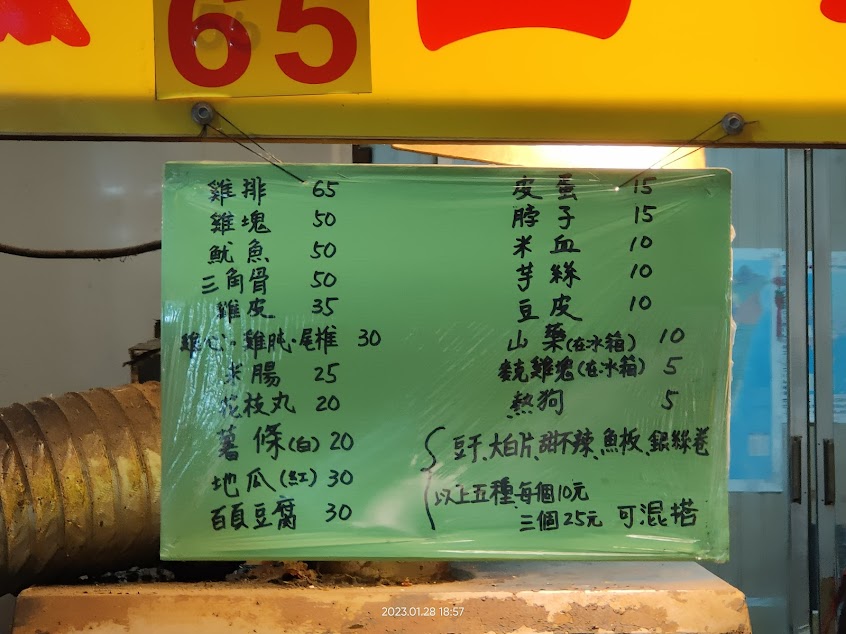 65
雞排 65
雞塊 50
魷魚 50
三角骨 50
雞皮 35
雞心·雞肫·尾椎 30
米腸 25
花枝丸 20
薯條(白) 20
地瓜(紅) 30
百頁豆腐 30
皮蛋 15
脖子 15
米血 10
芋絲 10
豆皮 10
山藥(在冰箱) 10
麥克雞塊(在冰箱) 5
熱狗 5
豆干、大白片、甜不辣、魚板、銀絲卷
以上五種、每個10元
三個25元 可混搭
2023.01.28 18:57